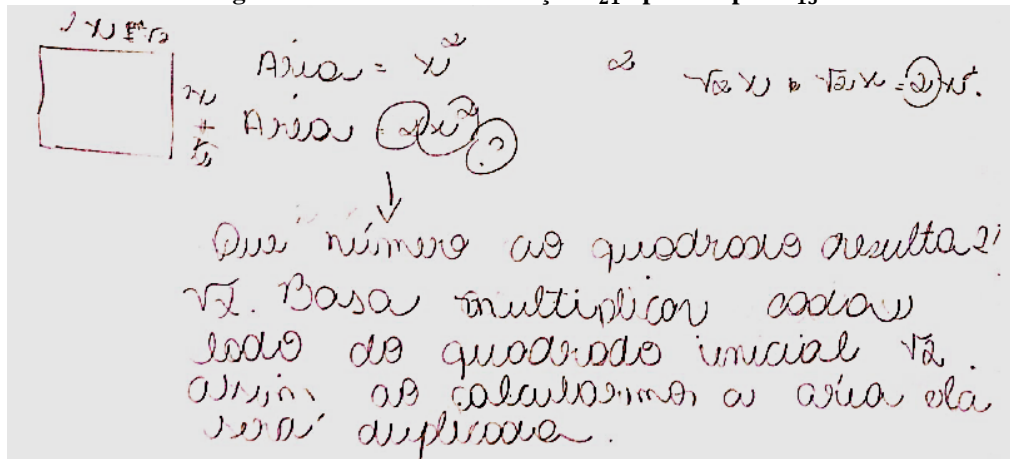 Área = x²
2
√2 x · √2 x = 2 x².
Área = 2x² ?
Que número ao quadrado resulta 2?
√2. Basa multiplicar cada
lado do quadrado inicial √2.
assim ao calcularmos a aréa ela
será duplicada.